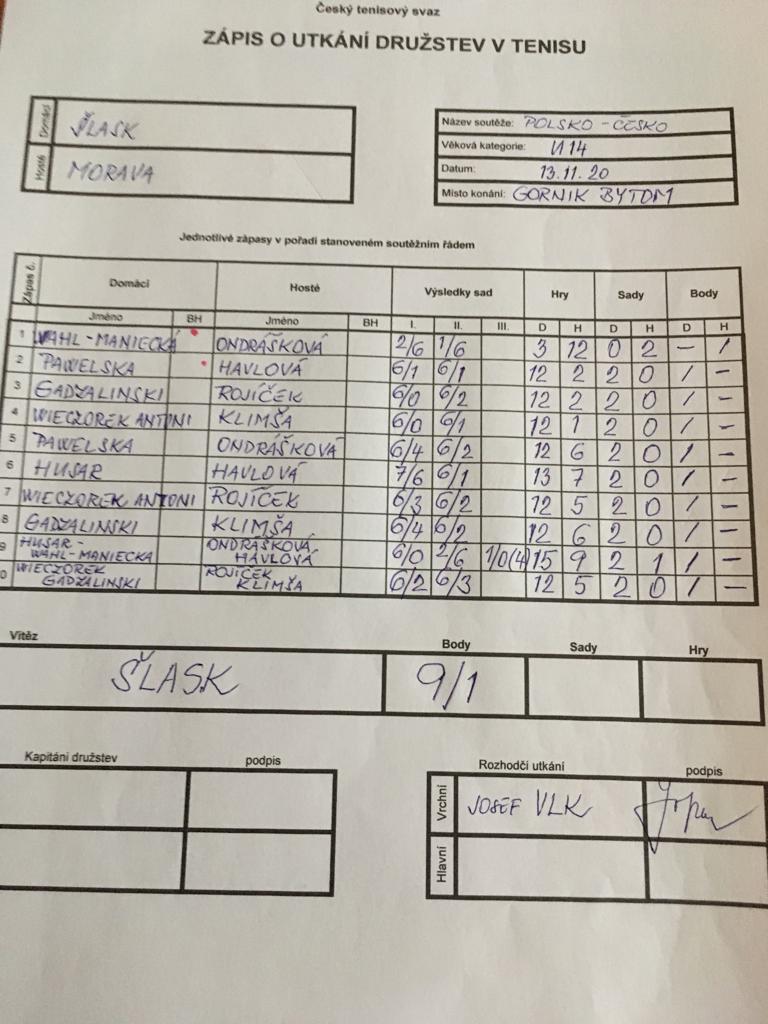 Český tenisový svaz
ZÁPIS O UTKÁNÍ DRUŽSTEV V TENISU
Domácí ŠLASK
Hosté MORAVA
Název soutěže: POLSKO - ČESKO
Věková kategorie: U14
Datum: 13.11.20
Místo konání: GORNIK BYTOM
Jednotlivé zápasy v pořadí stanoveném soutěžním řádem
Zápas č. Domácí Hosté Výsledky sad Hry Sady Body
Jméno BH Jméno BH I. II. III. D H D H D H
1 WAHL-MANIECKÁ ONDRÁŠKOVÁ 2/6 1/6 3 12 0 2 – 1
2 PAWELSKA HAVLOVÁ 6/1 6/1 12 2 2 0 1 –
3 GADZALINSKI ROJÍČEK 6/0 6/2 12 2 2 0 1 –
4 WIECZOREK ANTONI KLIMŠA 6/0 6/1 12 1 2 0 1 –
5 PAWELSKA ONDRÁŠKOVÁ 6/4 6/2 12 6 2 0 1 –
6 HUSAR HAVLOVÁ 7/6 6/1 13 7 2 0 1 –
7 WIECZOREK ANTONI ROJÍČEK 6/3 6/2 12 5 2 0 1 –
8 GADZALINSKI KLIMŠA 6/4 6/2 12 6 2 0 1 –
9 HUSAR - ONDRÁŠKOVÁ
WAHL-MANIECKA HAVLOVÁ 6/0 2/6 1/0(4) 15 9 2 1 1 –
0 WIECZOREK ROJÍČEK
GADZALINSKI KLIMŠA 6/2 6/3 12 5 2 0 1 –
Vítěz Body Sady Hry
ŠLASK 9/1
Kapitáni družstev podpis
Rozhodčí utkání podpis
Vrchní JOSEF VLK
Hlavní